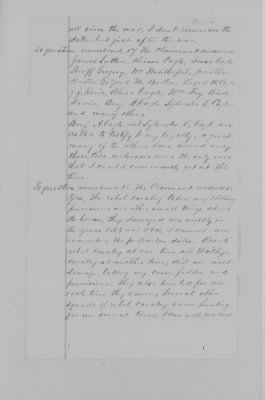 all since the war, I don't remember the
dates, but just after the war.
To question numbered 17 the Claimant answered
James Sutton, Hiram Cagle, Isaac
Sheriff Gregory, Wm
J. J. Lewis, Alexr Cagle, Wm
Lewis, Benj A Cagle, Sylvester L Cagle
and many others.
Benj A Cagle and Sylvester L Cagle are
called to testify to my loyalty. a great
many of the others have moved away
these two witnesses were the only ones
that I could conveniently get at this
time.
To question numbered 18. The Claimant answered
Yes. The rebel cavalry taken my clothing
provisions and other small things about
the house, they damaged me mostly in
the years 1863 and 1864, I cannot now
remember the particular dates.
rebel cavalry at one time and
cavalry at another time, did me most
damage, taking my corn fodder and
provisions, They also hunted for me
each time they came, Several other
squads of rebel cavalry came hunting
for me several times, I can not now